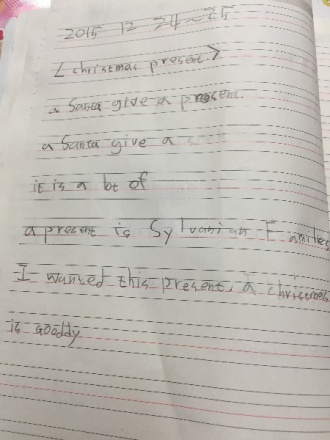 2015 12 24~25
<christmas present>
a Santa give a present.
a Santa give a
it is a bt of
a present is Sylvanian Families
I wanted this present, a christmas
is gooddy